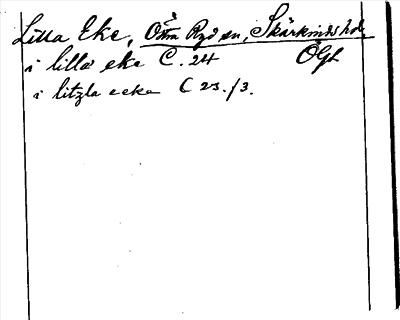 Lilla Eke, Östra Ryd sn, Skärkinds hd,
ÖGL
i lilla eke C. 24
i litzla eeke C 23./3.